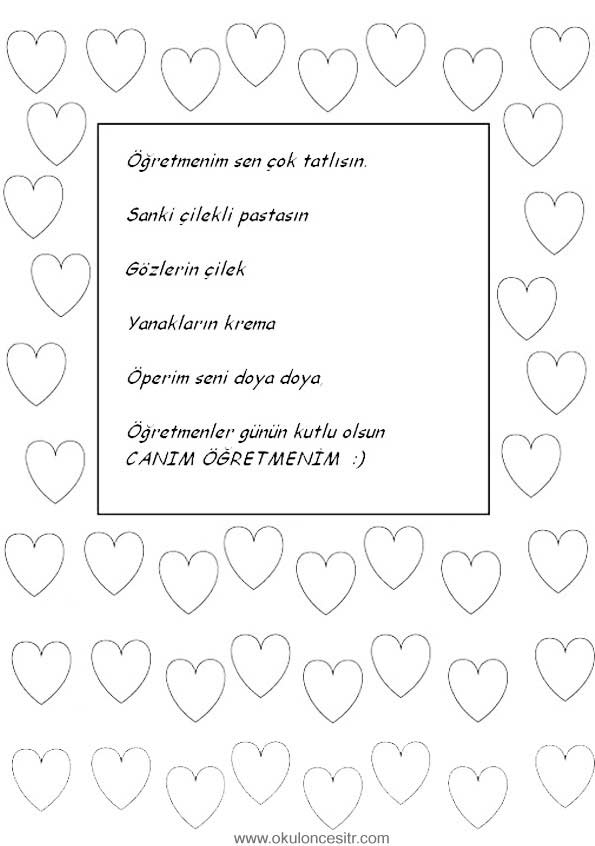 Öğretmenim sen çok tatlısın.
Sanki çilekli pastasın
Gözlerin çilek
Yanakların krema
Öperim seni doya doya,
Öğretmenler günün kutlu olsun
CANIM ÖĞRETMENİM :)
www.okuloncesitr.com